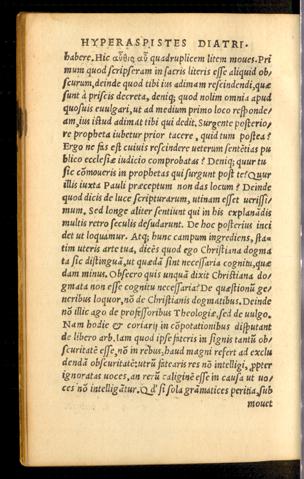 HYPERASPISTES DIATRI-
habere. Hic αὖθις αὖ quadruplicem litem moues. Pri
mum quod scripseram in sacris literis esse aliquid ob/
scurum, deinde quod tibi ius adimam rescindendi, quæ
sunt à priscis decreta, deniq; quod nolim omnia apud
quosuis euulgari, ut ad medium primo loco responde/
am, ius istud adimat tibi qui dedit. Surgente posterio/
re propheta iubetur prior tacere, quid tum postea?
Ergo ne fas est cuiuis rescindere ueterum sentētias pu
blico ecclesiæ iudicio comprobatas? Deniq; quur tu
sic cōmoueris in prophetas qui surgunt post te? Quur
illis iuxta Pauli præceptum non das locum? Deinde
quod dicis de luce scripturarum, utinam esset uerissi/
mum. Sed longe aliter sentiunt qui in his explanādis
multis retro seculis desudarunt. De hoc posterius inci
det ut loquamur. Atq; hunc campum ingrediens, sta/
tim uteris arte tua, dicēs quod ego Christiana dogma
ta sic distinguā, ut quædā sint necessaria cognitu, quæ
dam minus. Obsecro quis unquā dixit Christiana do/
gmata non esse cognitu necessaria? De quæstionū ge/
neribus loquor, nō de Christianis dogmatibus. Deinde
nō illic ago de professoribus Theologiæ, sed de uulgo.
Nam hodie & coriarij in cōpotationibus disputant
de libero arb. Iam quod ipse fateris in signis tantū ob/
scuritatē esse, nō in rebus, haud magni refert ad exclu
dendā obscuritatē: utrū fatearis res nō intelligi, ꝓpter
ignoratas uoces, an rerū caliginē esse in causa ut uo/
ces nō intelligātur. Q d' si sola grāmatices peritia, sub
mouet